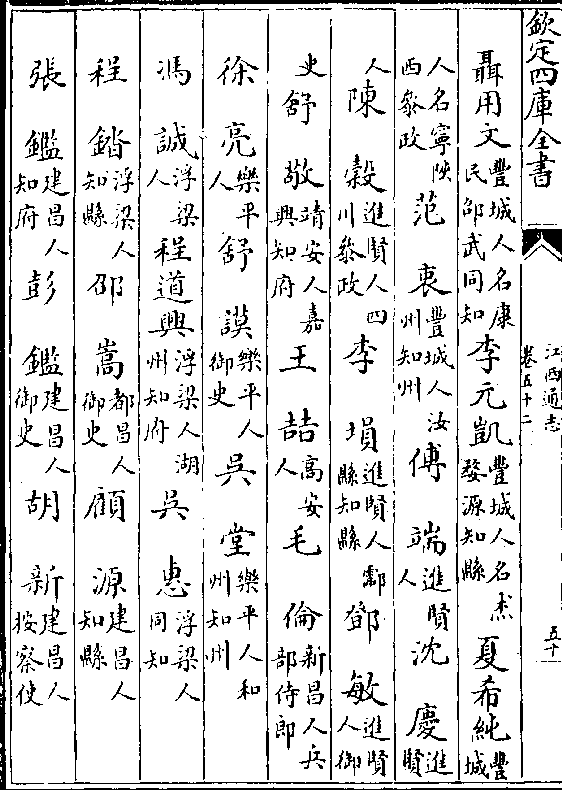 欽定四庫全書
江西通志
卷五十二
五十
聶用文豐城人名康民邵武同知李元凱豐城人名杰婺源知縣夏希純豐城
人名寧陜西叅政范衷豐城人汝州知州傅端進賢人沈慶進賢
人陳榖進賢人四川叅政李塤進賢人鄱縣知縣鄧敏進賢人御
史舒敬靖安人嘉興知府王喆高安人毛倫新昌人兵部侍郎
徐亮樂平人舒謨樂平人御史吳堂樂平人和州知州
馮誠浮梁人程道興浮梁人湖州知府吳惠浮梁人同知
程鍇浮梁人知縣邵嵩都昌人御史顧源建昌人知縣
張鑑建昌人知府彭鑑建昌人御史胡新建昌人按察使